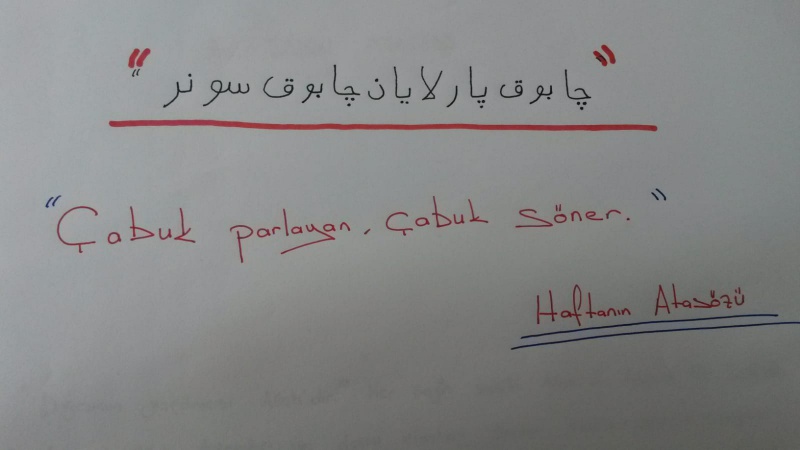 "چابوق پارلایان چابوق سونر"
"Çabuk parlayan, çabuk söner."
Haftanın Atasözü